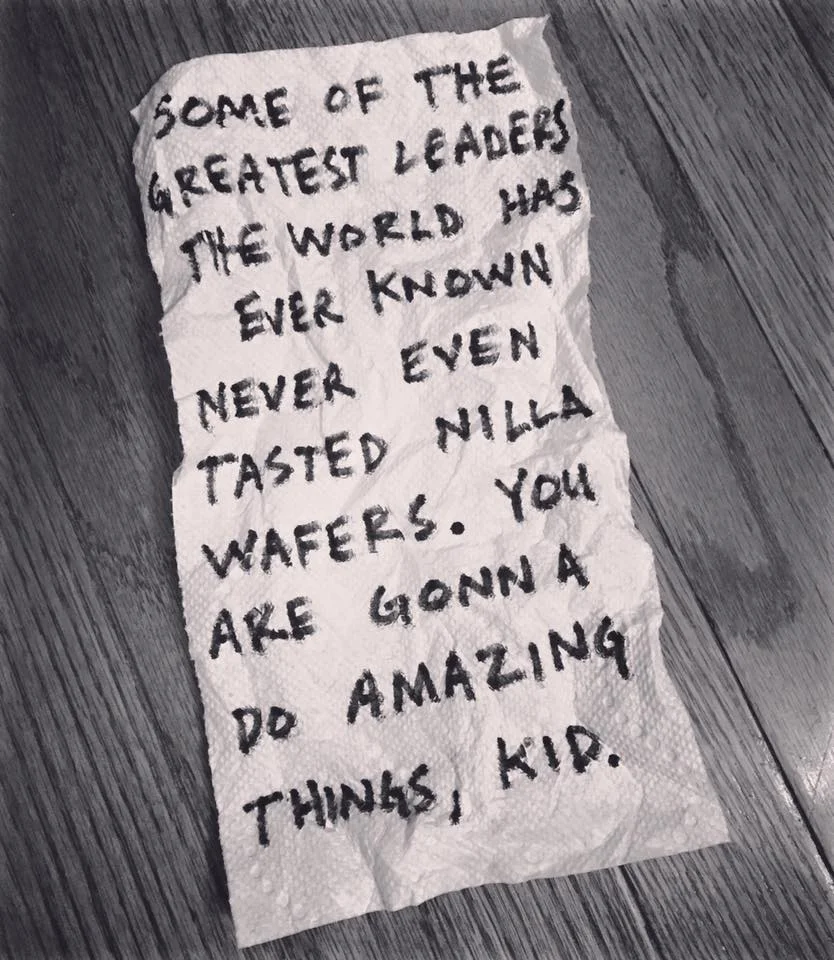 SOME OF THE
GREATEST LEADERS
THE WORLD HAS
EVER KNOWN
NEVER EVEN
TASTED NILLA
WAFERS. YOU
ARE GONNA
DO AMAZING
THINGS, KID.